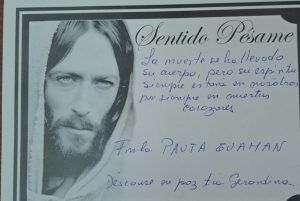 Sentido Pésame
La muerte se ha llevado
su cuerpo, pero su espíritu
siempre estara en nosotros
por siempre en nuestros
corazones
Fmla PAUTA GUAMAN
Descanse en paz tia Gerardina.